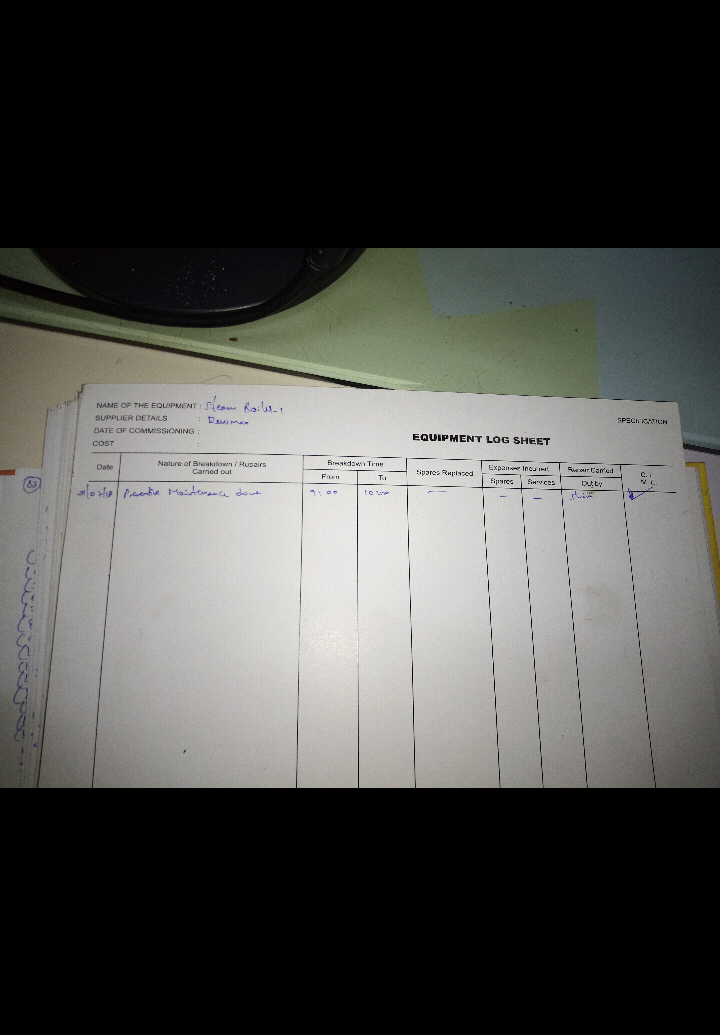 NAME OF THE EQUIPMENT : Steam Boiler-1
SUPPLIER DETAILS :
DATE OF COMMISSIONING :
COST :
SPECIFICATION
EQUIPMENT LOG SHEET
Date Nature of Breakdown / Rupairs Carried out Breakdown Time From To Spares Replaced Expenses Incurred Spares Services Repair Carried Out by
/07/18 Maintenance done 9:00 — — —